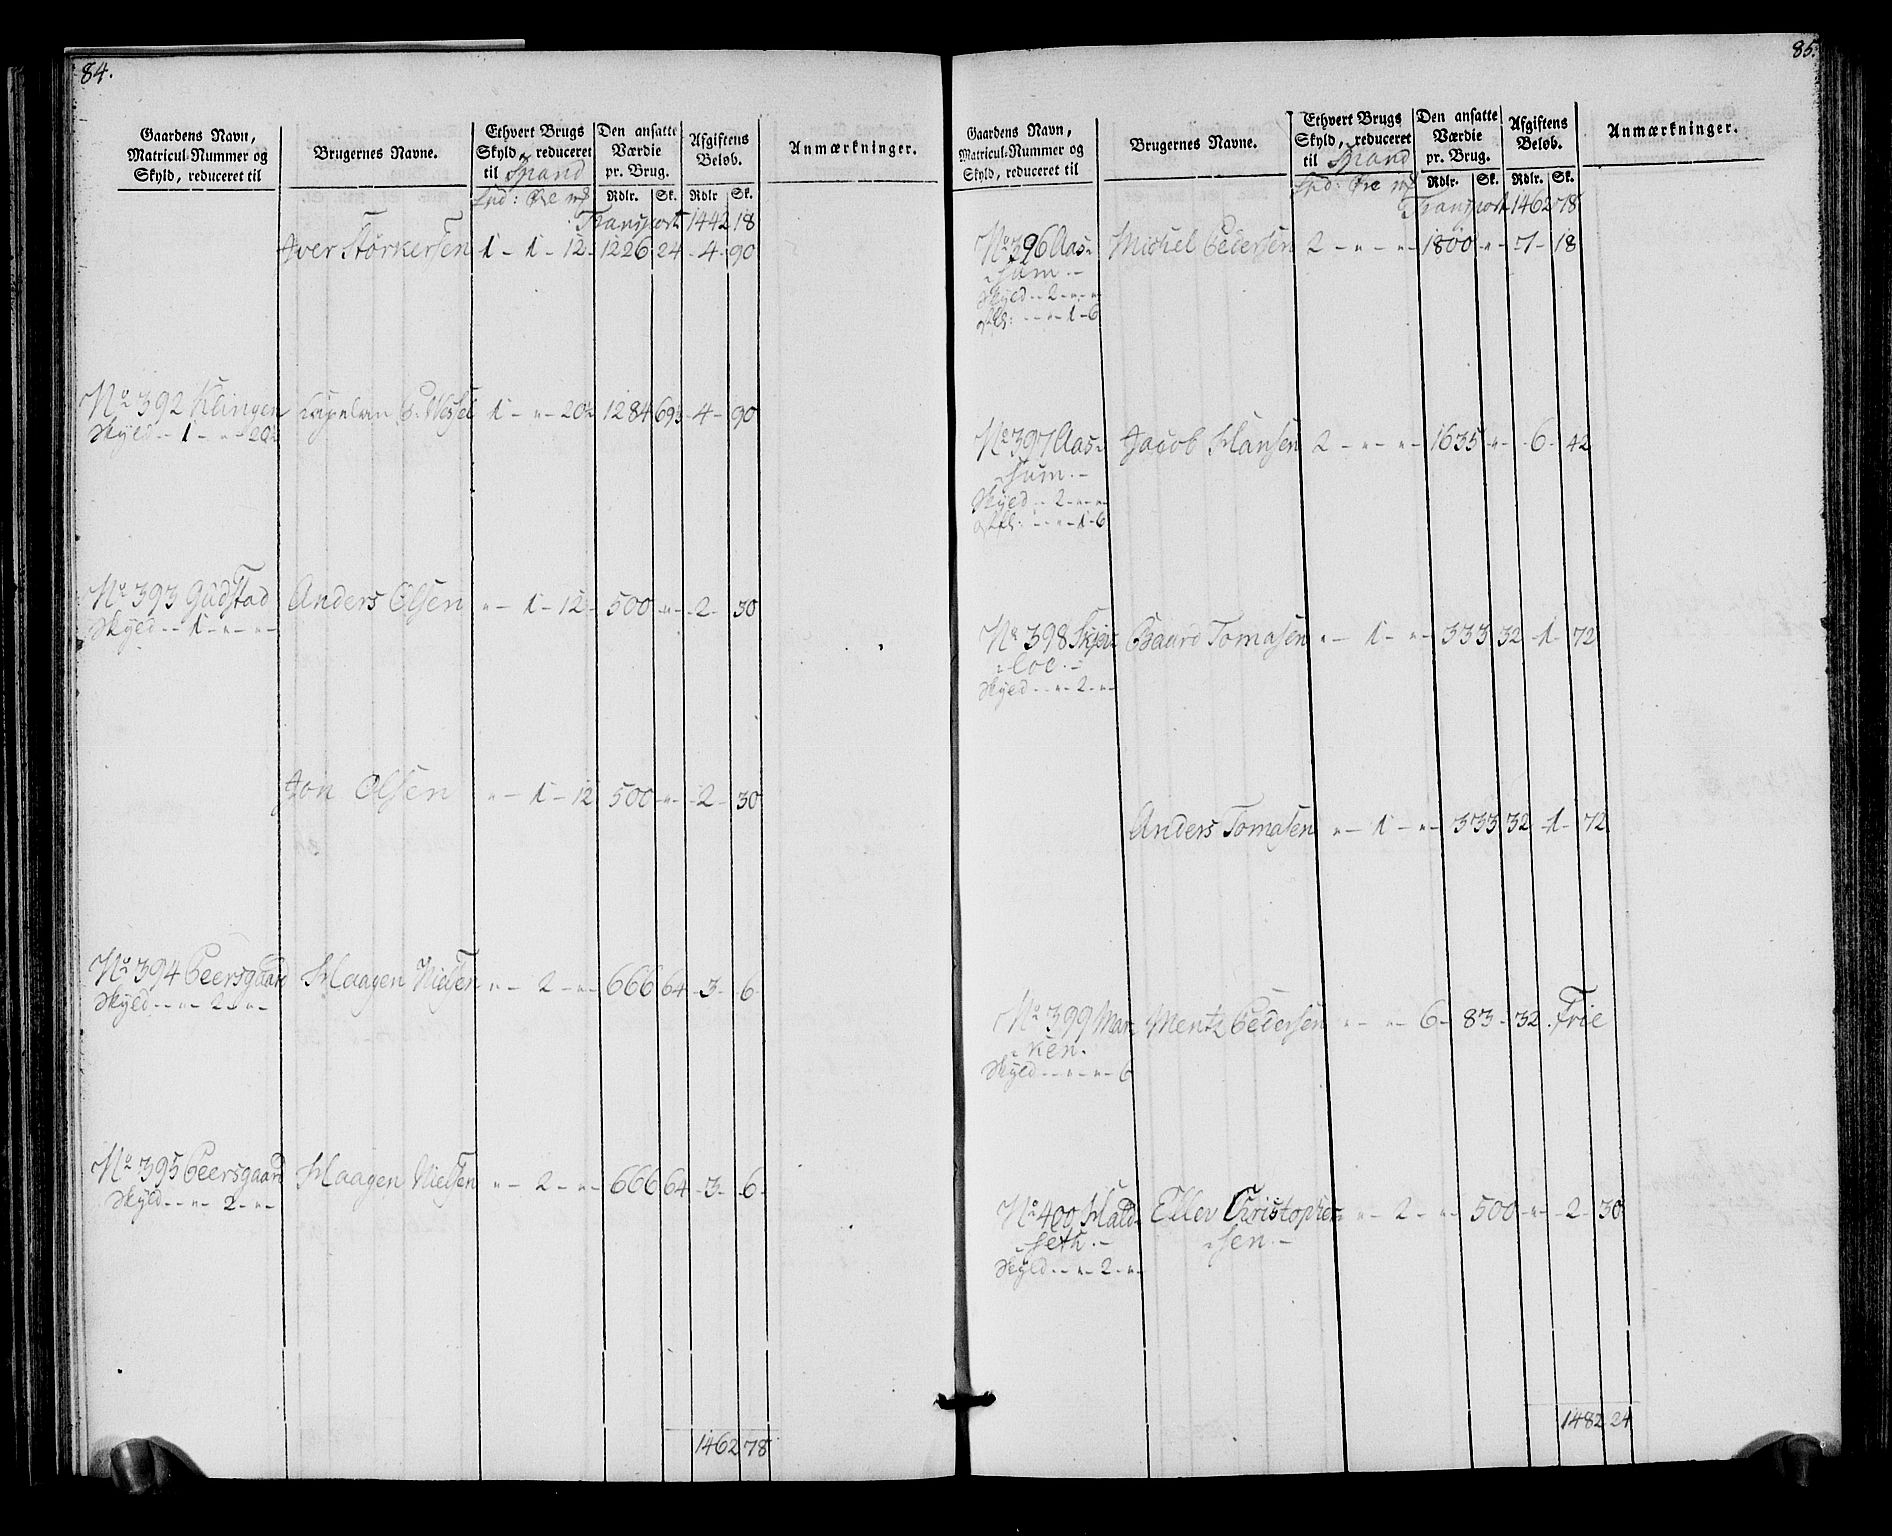 84.
Gaardens Navn, Matricul-Nummer og Skyld, reduceret til
Brugernes Navne.
Ethvert Brugs Skyld, reduceret til Spand
Den ansatte Værdie pr. Brug.
Afgiftens Beløb.
Anmærkninger.
Spd: Øre mk Rdlr. Sk. Rdlr Sk.
Transport 1442 18
Iver Størkersen 1 - 1 - 12 - 1226 24 - 4 - 90
No 392 Klingen Capelan P. Wessel 1 - " - 20½ 1284 69½ - 4 - 90
Skyld - - 1 - " - 20½
No 393 Gudstad Anders Olsen " - 1 - 12 - 500 - " - - 2 - 30
Skyld - - 1 - " - "
Jon Olsen " - 1 - 12 500 - " - - 2 - 30
No 394 Peersgaard Haagen Nielsen " - 2 - " - 666 64 - 3 - 6
Skyld - - " - 2 - "
No 395 Peersgaard Haagen Nielsen " - 2 - " - 666 64 - 3 - 6 -
Skyld - - " - 2 - "
1462 78
85.
Gaardens Navn, Matricul-Nummer og Skyld, reduceret til
Brugernes Navne.
Ethvert Brugs Skyld, reduceret til Spand
Den ansatte Værdie pr. Brug.
Afgiftens Beløb.
Anmærkninger.
Spd: Øre mk Rdlr. Sk. Rdlr. Sk.
Transport 1462 78
No 396 Aas= Michel Pedersen 2 - " - " - 1800 - " - 7 - 18
=sum. -
Skyld - - 2 - " - "
- - " - 1 - 6
No 397 Aas= Jacob Hansen 2 - " - " - 1635 - " - 6 - 42
=sum. -
Skyld - - 2 - " - "
- - " - 1 - 6
No 398 Baard Tomasen " - 1 - " - 333 32 - 1 - 72
=loe. -
Skyld - - " - 2 - "
Anders Tomasen " - 1 - " - 333 32 - 1 - 72
No 399 Mar= Mentz Pedersen " - " - 6 - 83 - 32 . Frie
=ken.
Skyld - - " - " - 6
No 400 Hald= Ellev Christopher= " - 2 - " - 500 - " - 2 - 30
=seth. - =sen. -
Skyld - - " - 2 - "
1482 24